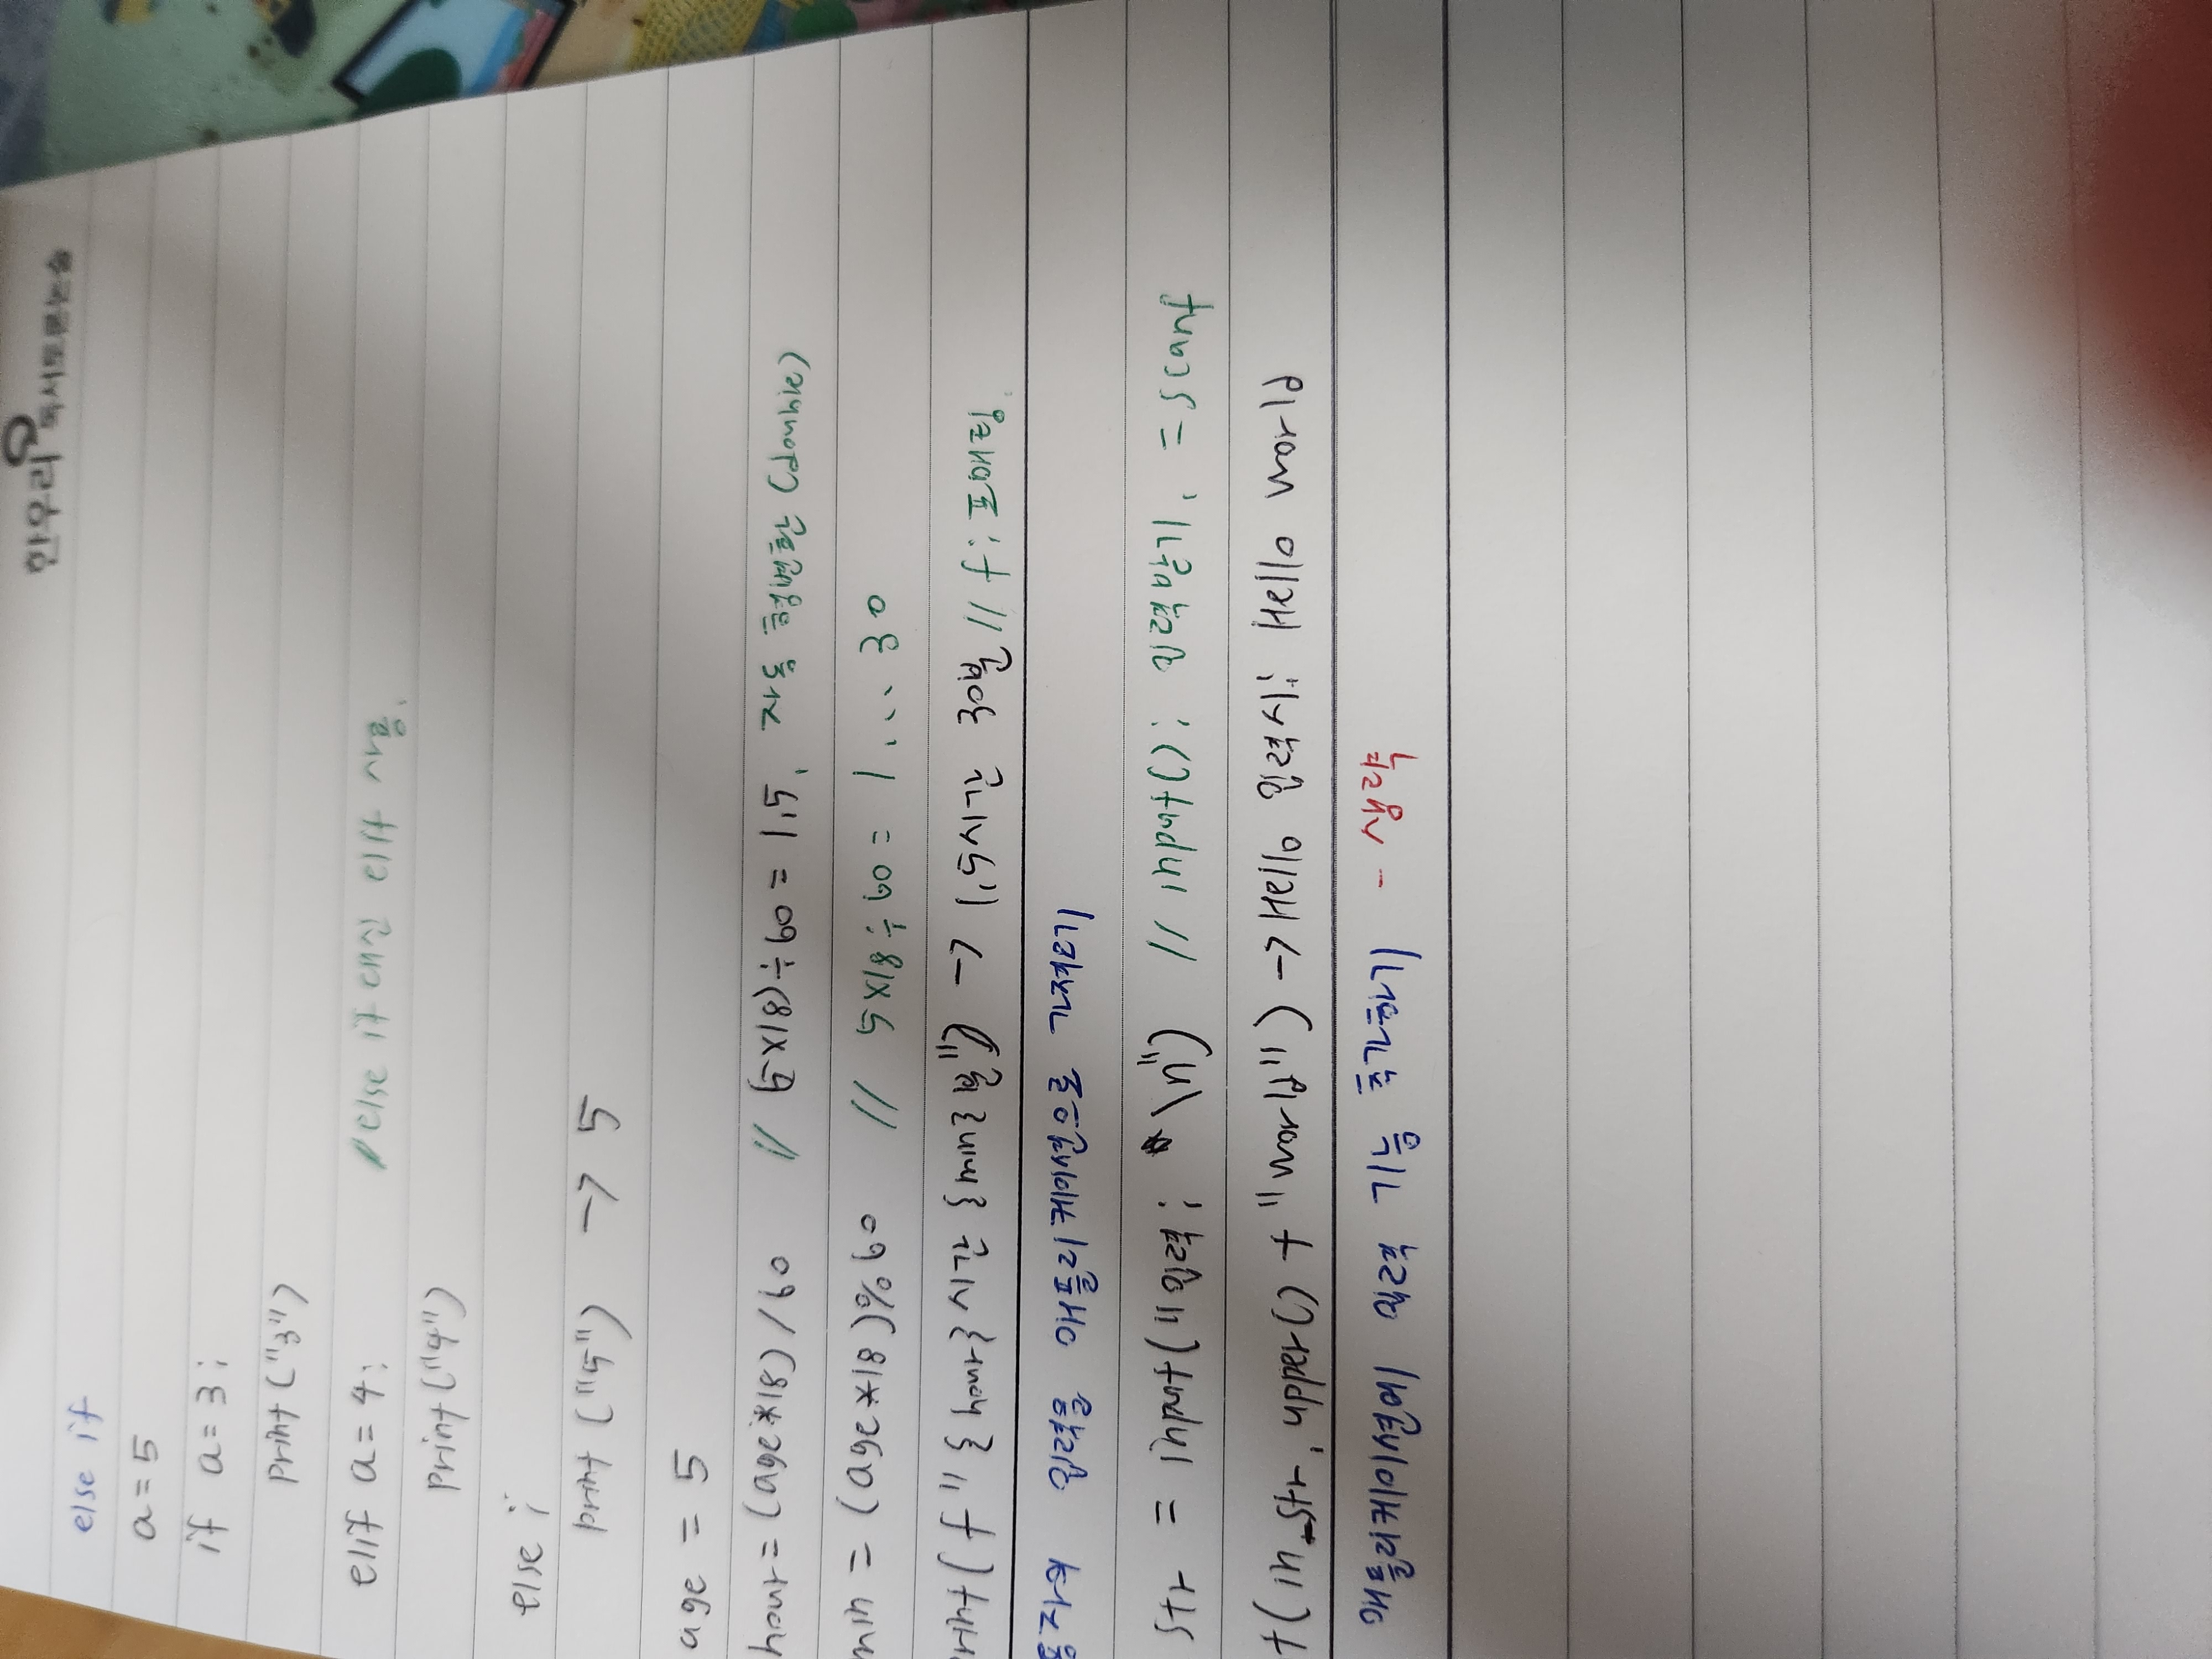 한우리 독서토론논술
else if
a = 5
if a = 3 :
print ("3")
elif a = 4 : // else if 대신 elif 사용.
print ("4")
else :
print ("5") -> 5
age = 5
hour = (age*18) / 60 // (5×18)÷60 = 1.5. 자동 형변환 (double)
min = (age*18)%60 // 5×18÷60 = 1 ... 30
rint(f"{hour}시간 {min}분") -> 1.5시간 30분 // f : 포매팅.
용자의 입력을 애플리케이션으로 가져오기
str = input("입력 : \n") // input() : 입력받기. = scanf
t(in_str.upper() + "world") -> Hello 입력시 : Hello world
애플리케이션에 입력 기능 추가하기 - 생략